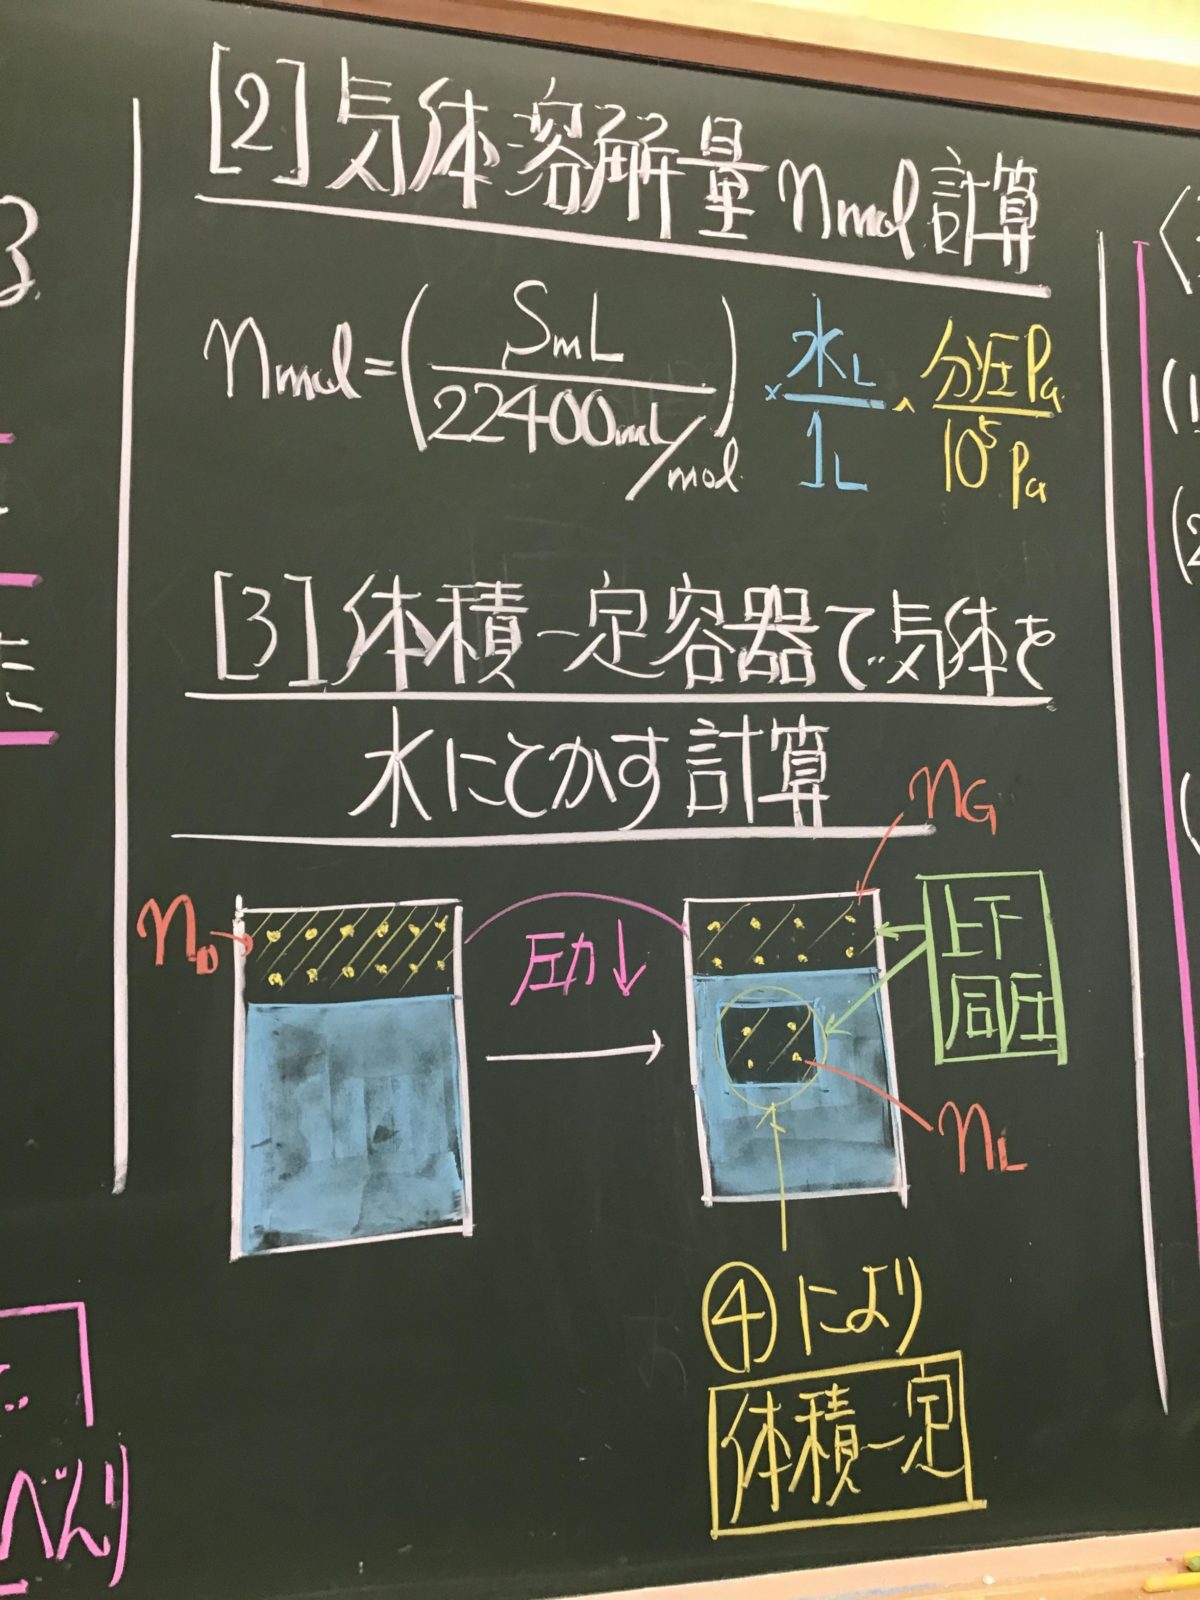 [2] 気体溶解量 n mol 計算
n mol = ( S mL / 22400 mL/mol ) × 水L / 1L × 分圧Pa / 10⁵ Pa
[3] 体積一定容器で気体を
水にとかす計算
nG
n0
圧力↓
上下
同圧
nL
④により
体積一定
べんり